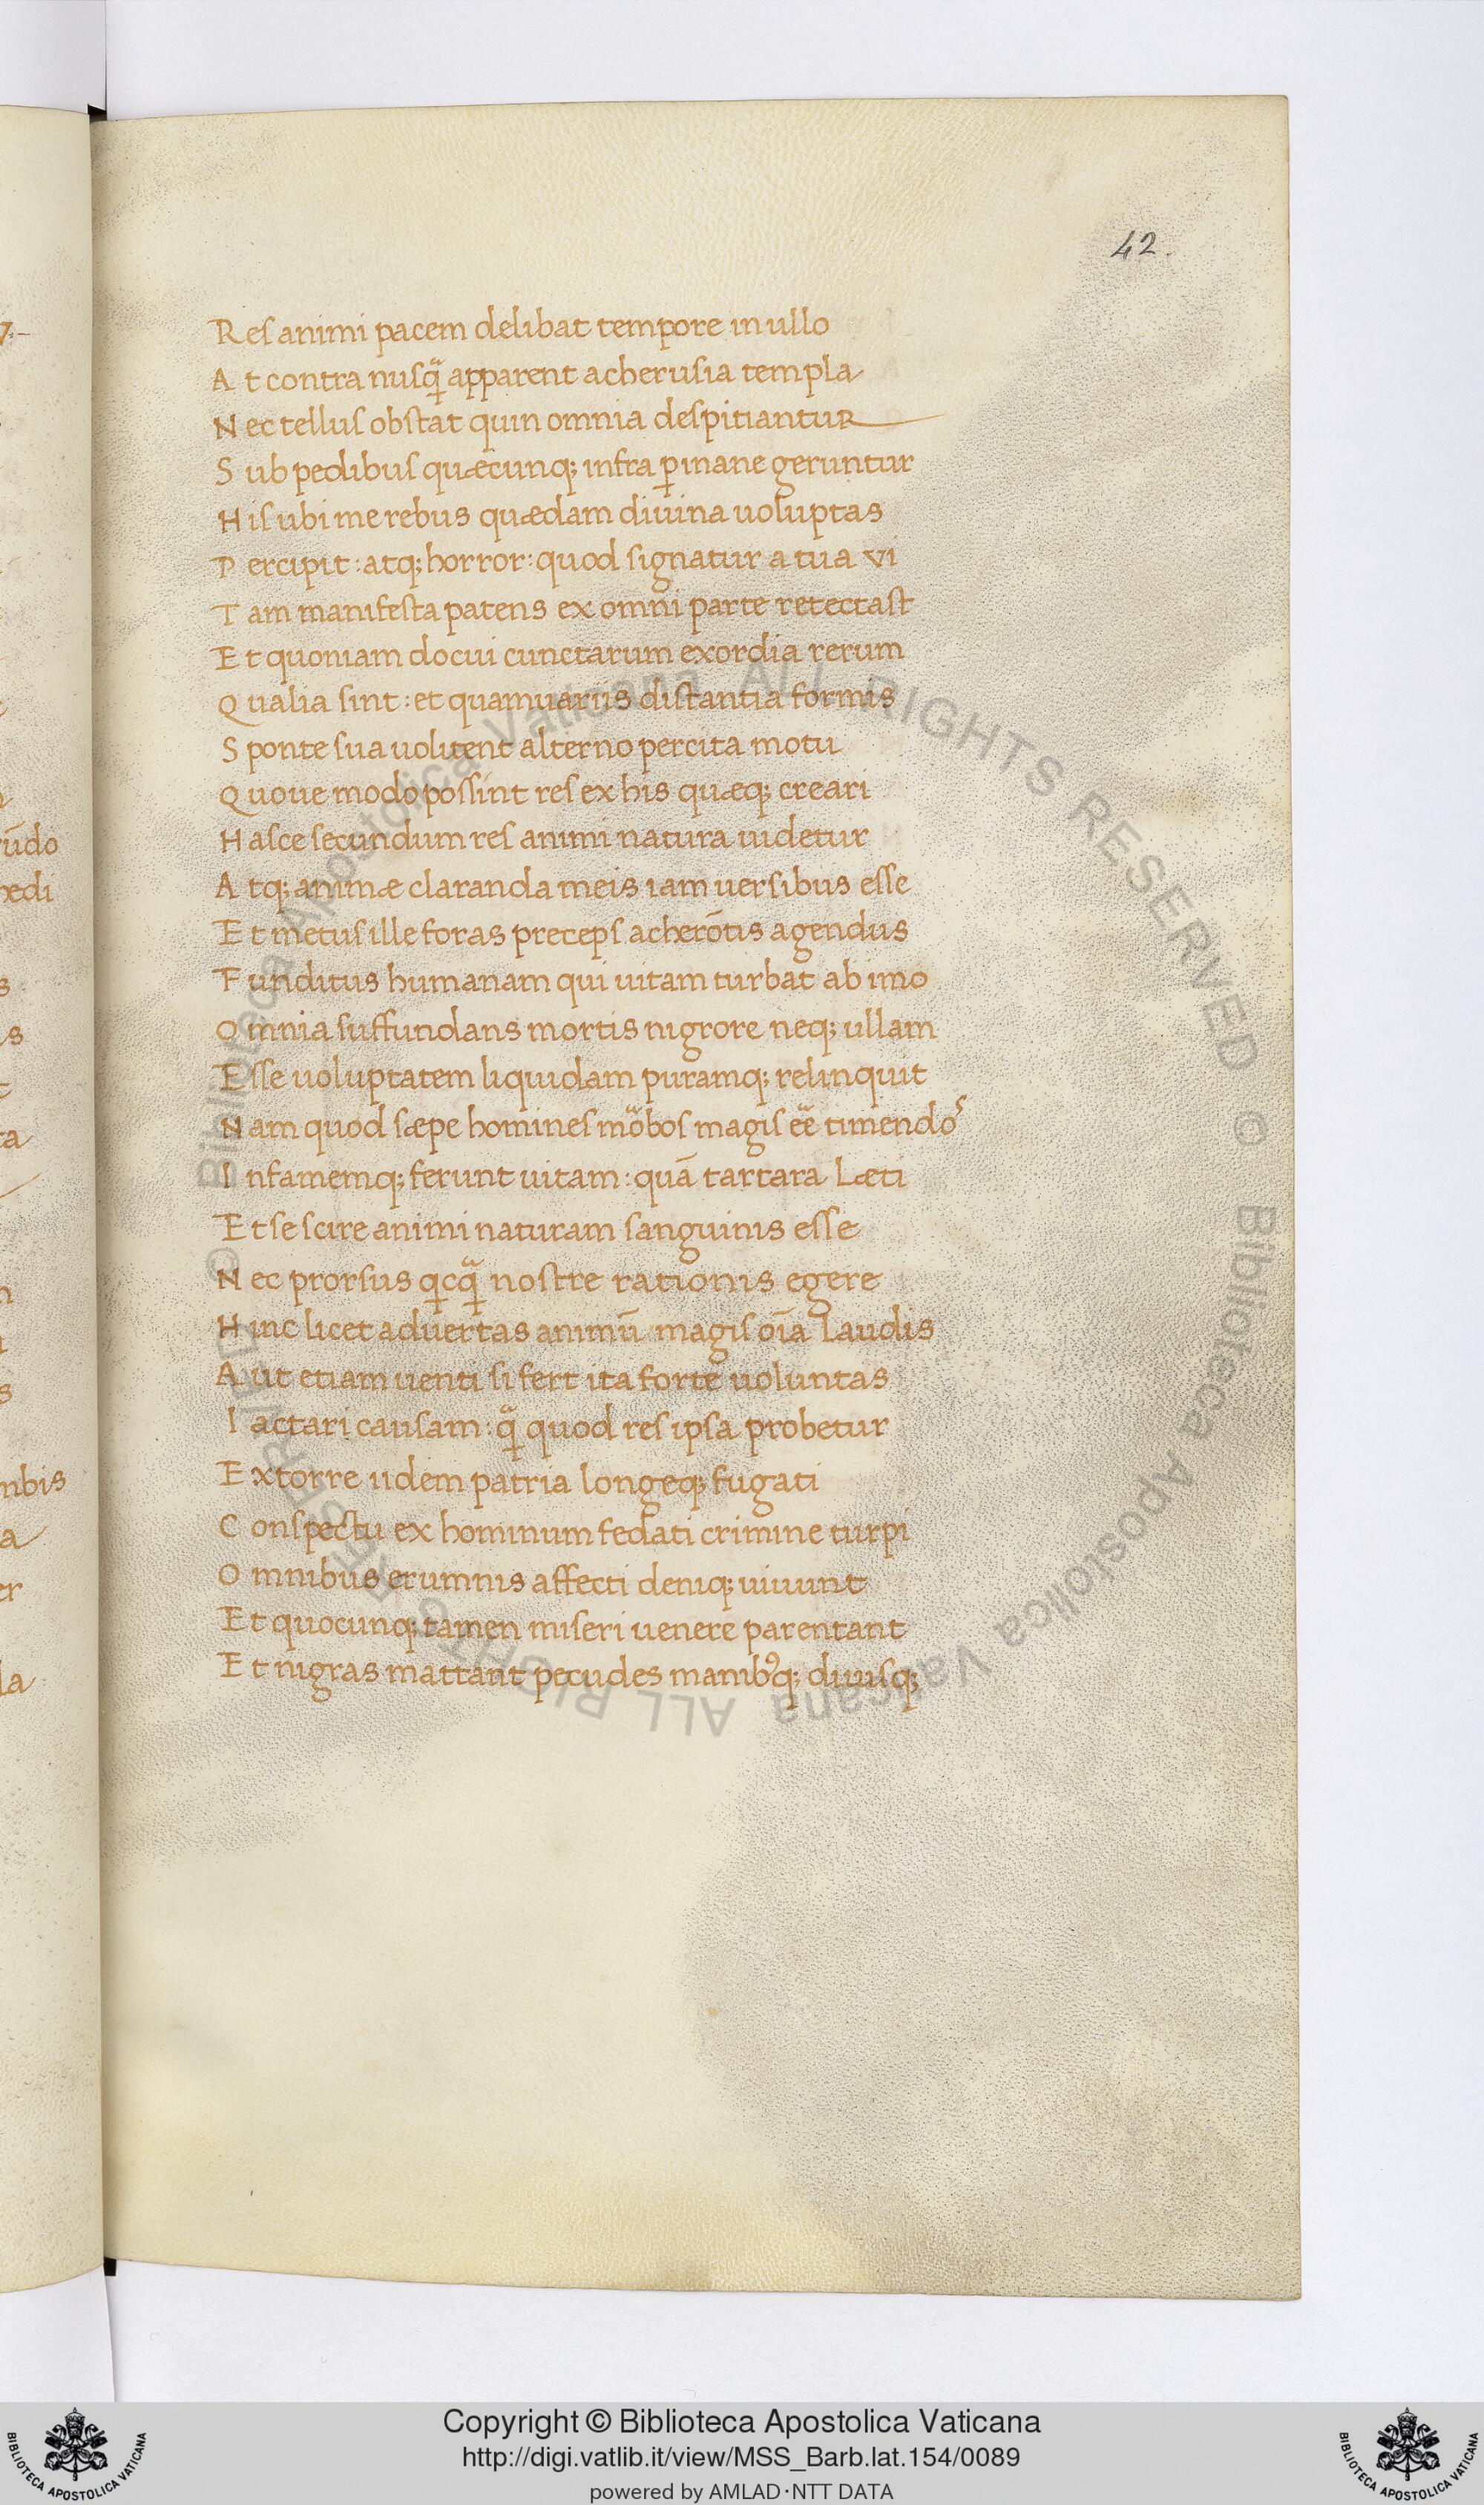 42.
Res animi pacem delibat tempore in ullo
At contra nusq̃ apparent acherusia templa
Nec tellus obstat quin omnia despitiantur
Sub pedibus quæcunq; infra ꝑ inane geruntur
His ubi me rebus quædam diuina uoluptas
Percipit: atq; horror: quod signatur a tua vi
Tam manifesta patens ex omni parte retectast
Et quoniam docui cunctarum exordia rerum
Qualia sint: et quam uariis distantia formis
Sponte sua uolitent alterno percita motu
Quoue modo possint res ex his quæq; creari
Hasce secundum res animi natura uidetur
Atq; animæ claranda meis iam uersibus esse
Et metus ille foras preceps acherōtis agendus
Funditus humanam qui uitam turbat ab imo
Omnia suffundans mortis nigrore neq; ullam
Esse uoluptatem liquidam puramq; relinquit
Nam quod sæpe homines mõbos magis eẽ timendos
Infamemq; ferunt uitam: quã tartara Læti
Et se scire animi naturam sanguinis esse
Nec prorsus qcq̃ nostre rationis egere
Hinc licet aduertas animũ magis oĩa Laudis
Aut etiam uenti si fert ita forte uoluntas
Iactari causam: q̃ quod res ipsa probetur
Extorre iidem patria longeq; fugati
Conspectu ex hominum fedati crimine turpi
Omnibus erumnis affecti deniq; uiuunt
Et quocunq; tamen miseri uenere parentant
Et nigras mattant pecudes manibꝰq; diuisq;
Copyright © Biblioteca Apostolica Vaticana
http://digi.vatlib.it/view/MSS_Barb.lat.154/0089
powered by AMLAD·NTT DATA